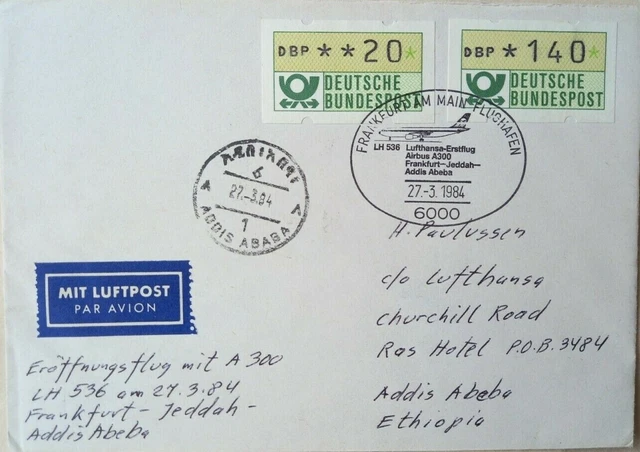 DBP ★★20★
DEUTSCHE
BUNDESPOST
DBP ★140★
DEUTSCHE
BUNDESPOST
FRANKFURT AM MAIN FLUGHAFEN
LH 536 Lufthansa-Erstflug
Airbus A300
Frankfurt-Jeddah-
Addis Abeba
27.-3. 1984
6000
አዲስ፡አበባ
6
27.-3.84
1
ADDIS ABABA
A A
H. Paulussen
c/o Lufthansa
Churchill Road
Ras Hotel P.O.B. 3484
Addis Abeba
Ethiopia
MIT LUFTPOST
PAR AVION
Eröffnungsflug mit A 300
LH 536 am 27.3.84
Frankfurt - Jeddah -
Addis Abeba